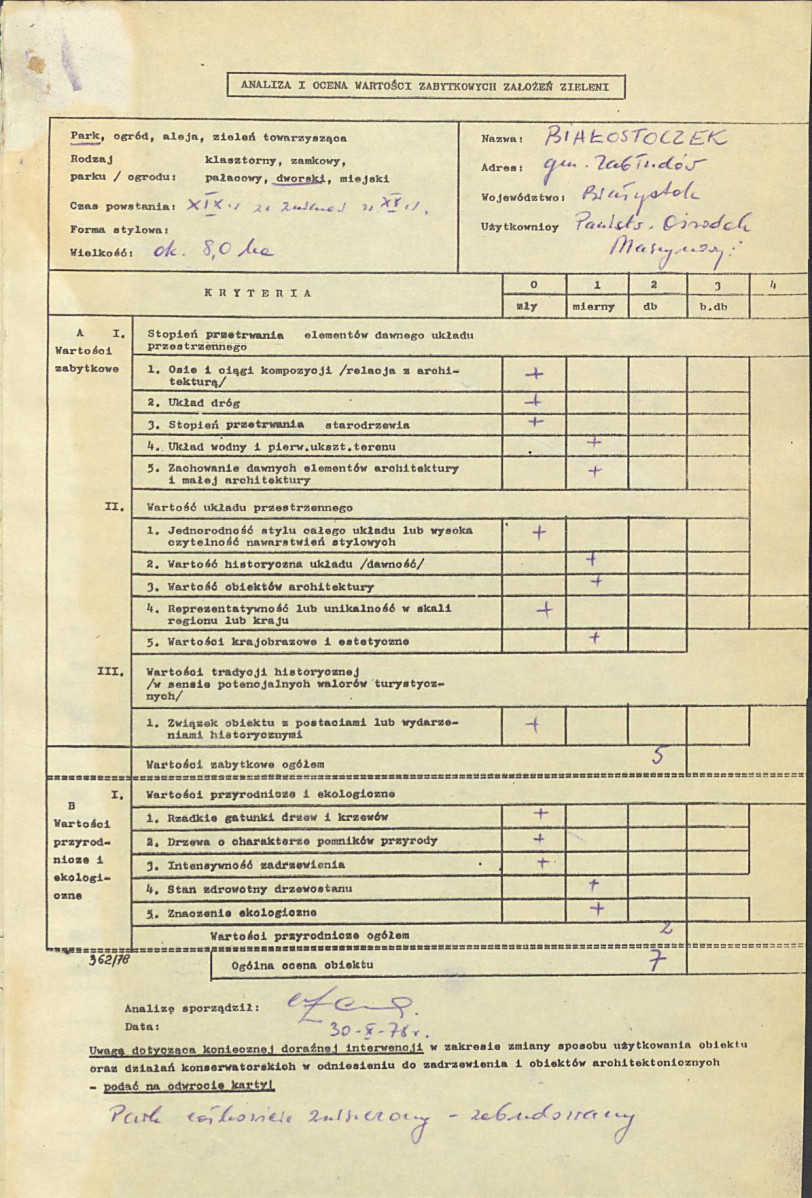 ANALIZA I OCENA WARTOŚCI ZABYTKOWYCH ZAŁOŻEŃ ZIELENI
Park, ogród, aleja, zieleń towarzysząca
Rodzaj klasztorny, zamkowy,
parku / ogrodu: pałacowy, dworski, miejski
Czas powstania: XIX w
Forma stylowa:
Wielkość: ok. 8,0 ha
Nazwa: BIAŁOSTOCZEK
Adres: gm. Zabłudów
Województwo: Białystok
Użytkownicy Państw. Ośrodek
Maszynowy
KRYTERIA
0 1 2 3 4
zły mierny db b.db
A I. Stopień przetrwania elementów dawnego układu
Wartości przestrzennego
zabytkowe 1. Osie i ciągi kompozycji /relacja z archi-
tekturą/ +
2. Układ dróg +
3. Stopień przetrwania starodrzewia +
4. Układ wodny i pierw.ukszt.terenu +
5. Zachowanie dawnych elementów architektury
i małej architektury +
II. Wartość układu przestrzennego
1. Jednorodność stylu całego układu lub wysoka
czytelność nawarstwień stylowych +
2. Wartość historyczna układu /dawność/ +
3. Wartość obiektów architektury +
4. Reprezentatywność lub unikalność w skali
regionu lub kraju +
5. Wartości krajobrazowe i estetyczne +
III. Wartości tradycji historycznej
/w sensie potencjalnych walorów turystycz-
nych/
1. Związek obiektu z postaciami lub wydarze-
niami historycznymi +
Wartości zabytkowe ogółem 5
B I. Wartości przyrodnicze i ekologiczne
Wartości przyrod-nicze i ekologi-czne
1. Rzadkie gatunki drzew i krzewów +
2. Drzewa o charakterze pomników przyrody +
3. Intensywność zadrzewienia +
4. Stan zdrowotny drzewostanu +
5. Znaczenie ekologiczne +
Wartości przyrodnicze ogółem 2
362/78
Ogólna ocena obiektu 7
Analizę sporządził:
Data: 30-X-78 r.
Uwaga dotycząca koniecznej doraźnej interwencji w zakresie zmiany sposobu użytkowania obiektu
oraz działań konserwatorskich w odniesieniu do zadrzewienia i obiektów architektonicznych
- podać na odwrocie karty!
Park całkowicie zniszczony - zabudowany